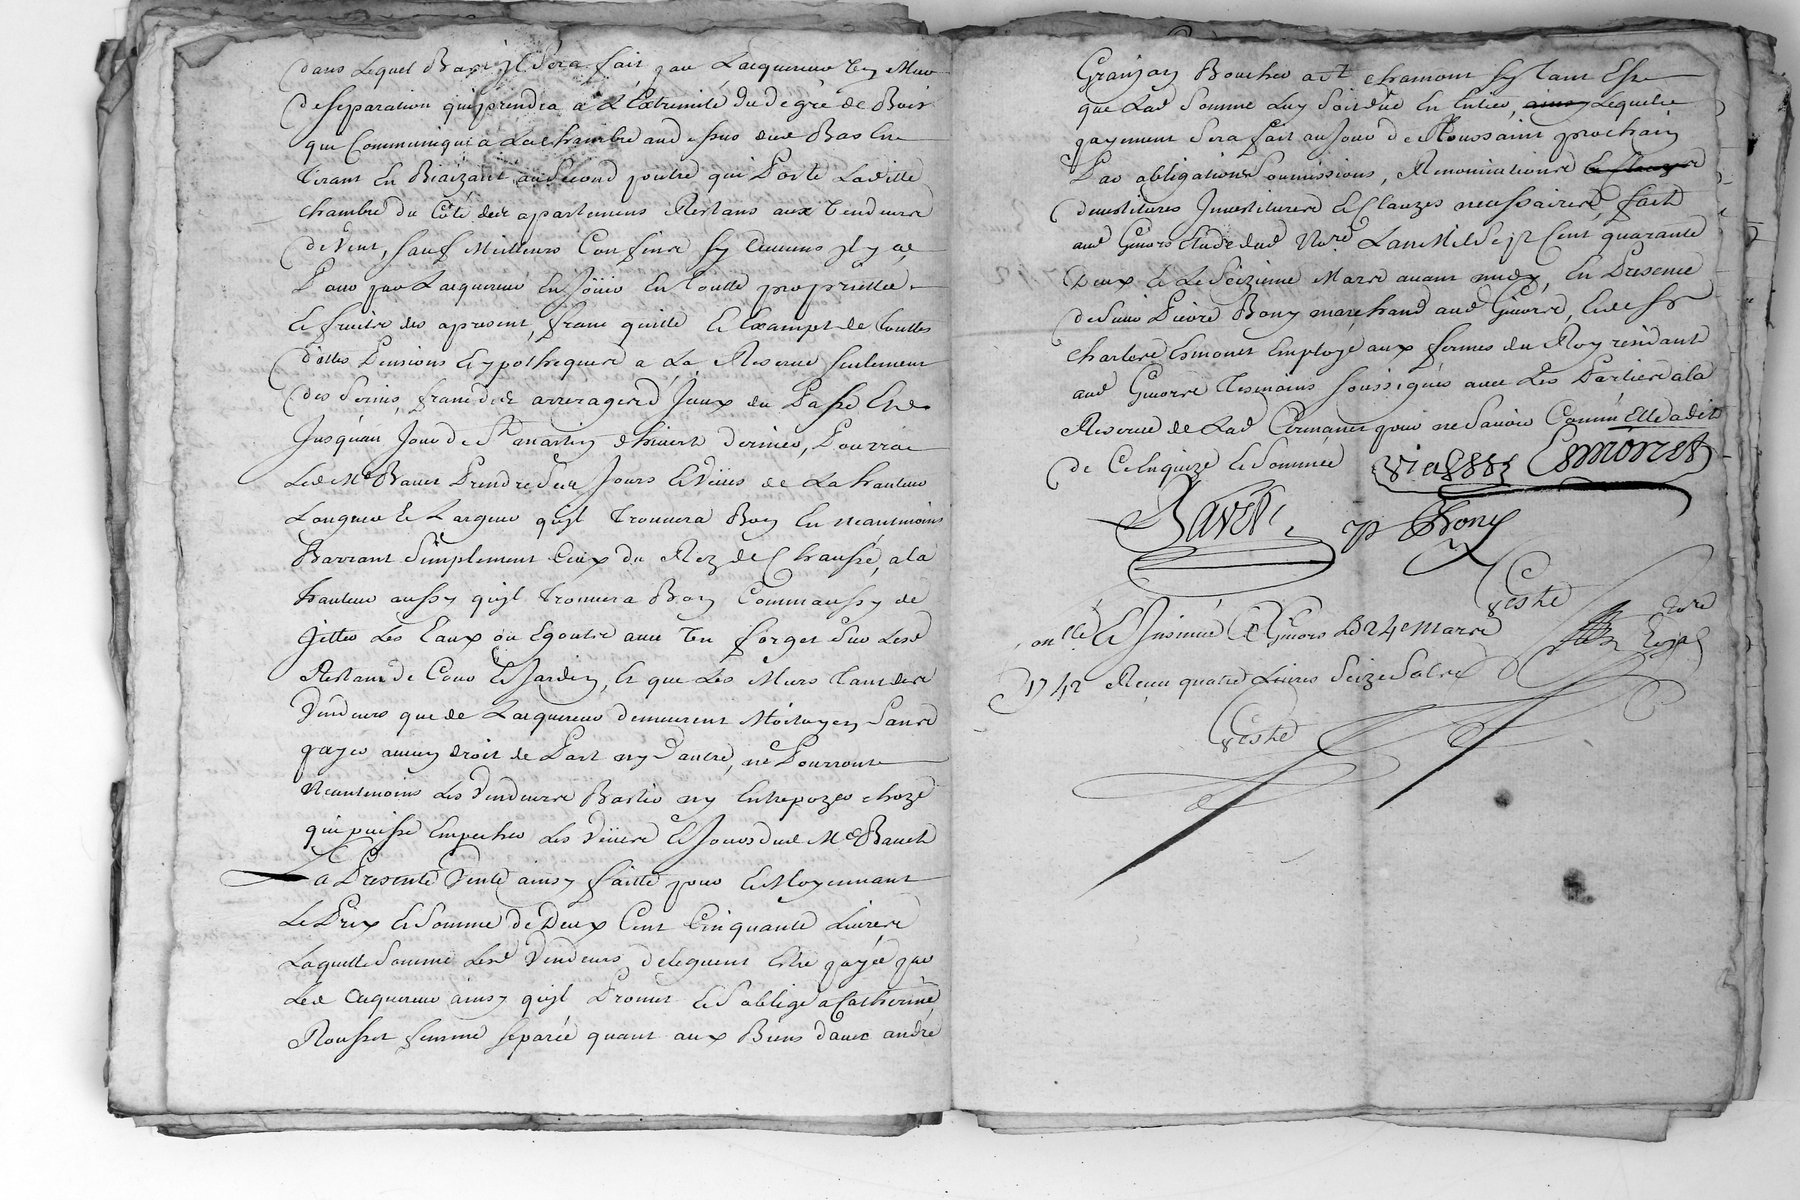 dans Lequel Bas il Sera fait par Lacquereur un Mur
de separation qui prendra a L'Extremité du degré de Bois
qui Communique a La chambre au dessus dud Bas En
Tirant En Biaizant au Second poutre qui Porte Laditte
chambre du Côté des apartemens Restans aux Vendeurs
de Vent, Sauf Meilleurs Confins sy aucuns jl y a,
Pour par Lacquereur En Joüir En toutte proprietté
Et fruits des apresent, franc quitte Et Exampt de touttes
dittes Pensions Et ypotheques a La Reserve Seulement
des Servis, franc des arrerages d'Jceux du Passé
Jusqu'au Jour de St martin d'hivert dernier, Pourra
Led Mr Bavet Prendre Jours Et Vües de La hauteur
Longueur Et Largeur qu'jl Trouvera Bon En neantmoins
Barrant Simplement Ceux du Rez de Chaussé, a la
hauteur aussy qu'jl Trouvera Bon Comm aussy de
Jetter Les Eaux ou Egouts avec un forget Sur Lesd
Restans de Cour Et Jardin, Et que Les Murs tant des
Vendeurs que de Lacquereur demeurent Mitoyen Sans
payer aucun droit de Part ny d'autre, ne Pourront
Neantmoins Les Vendeurs Bastir ny Entrepozer choze
qui puisse Empecher Les Vües Et Jours dud Mr Bavet
La Presente Vente ainsy faitte pour Et Moyennant
Le Prix Et Somme de Deux Cent Cinquante Livres
Laquelle Somme Lesd Vendeurs deleguent Estre payée par
Led acquereur ainsy qu'jl Promet Et S'oblige a Catherine
Rousset femme Separée quant aux Biens d'avec andré
Granjan Boucher a St chamont
que Lad Somme Luy Soit due En Entier, ainsy Lequel
payement Sera fait au Jour de Toussaint prochain
Par obligations Soumissions, Renonciations Et Clauzes
devestitures Jnvestitures Et Clauzes necessaires, fait
aud Givors Etude dud Nore. L'an Mil Sept Cent quarante
Deux Et Le Seizieme Mars avant midy, En Presence
de Sieur Pierre Bony marchand aud Givors, Et de Sr
Charles Esmonet Employé aux fermes du Roy residant
aud Givors Tesmoins Soussignés avec Les Parties a la
Reserve de Lad pour ne Savoir Comm Elle a dit
de Ce Enquize Et Sommée
Esmonet
Bavet p Bony
Teste
Nore
Royal
onllé Et Jnsinué a Givors Le 24e Mars
1742 Receu quatre Livres Seize Sols
Teste